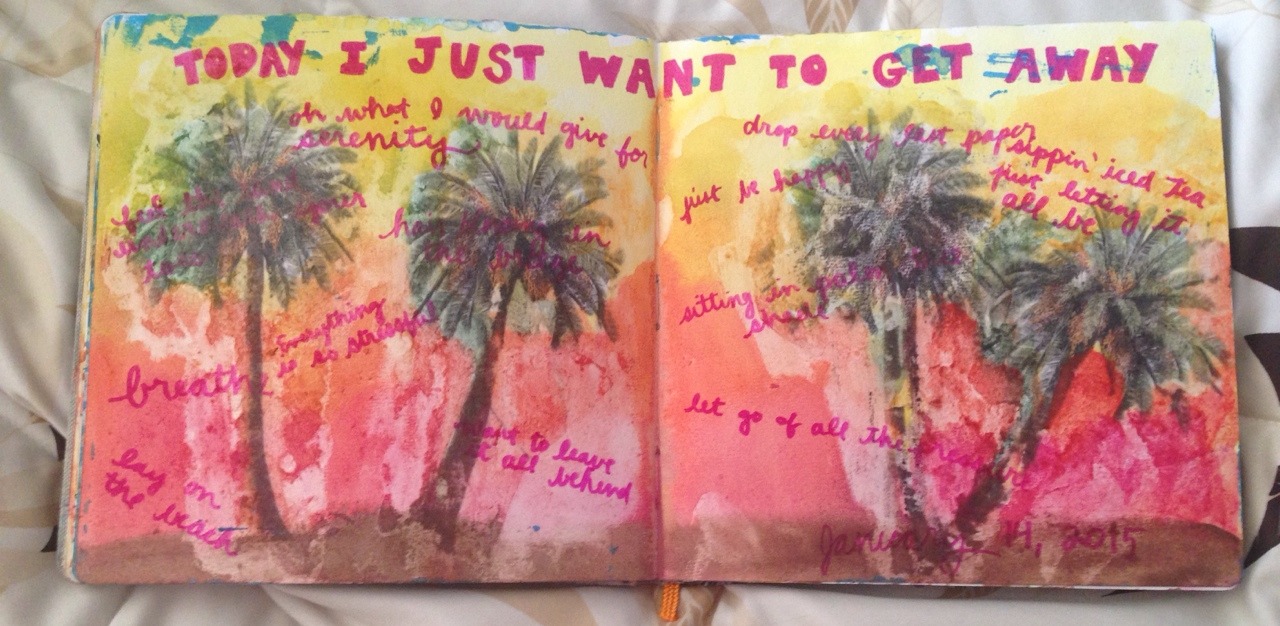 TODAY I JUST WANT TO GET AWAY
oh what I would give for
serenity
feel the
hair in
the breeze
Everything
is so stressful
breathe
want to leave
it all behind
lay on
the beach
drop every last paper
sippin' iced tea
just letting it
all be
just be happy
sitting in palm tree
shade
let go of all the pressure
January 14, 2015